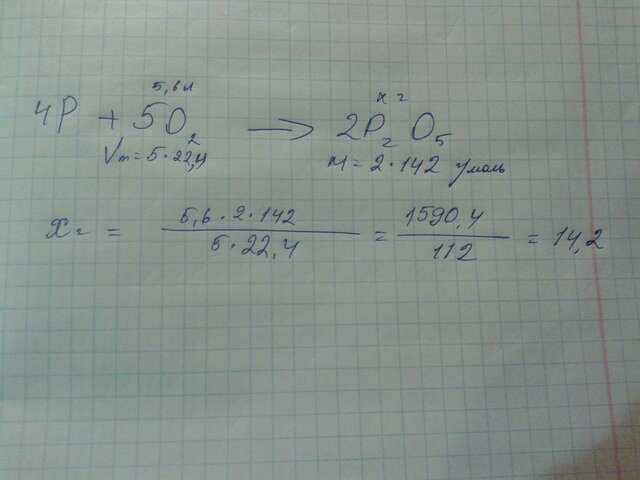 5,6л x г
4P + 5O2 → 2P2O5
Vm = 5·22,4 M = 2·142 г/моль
xг = 5,6·2·142 / 5·22,4 = 1590,4 / 112 = 14,2